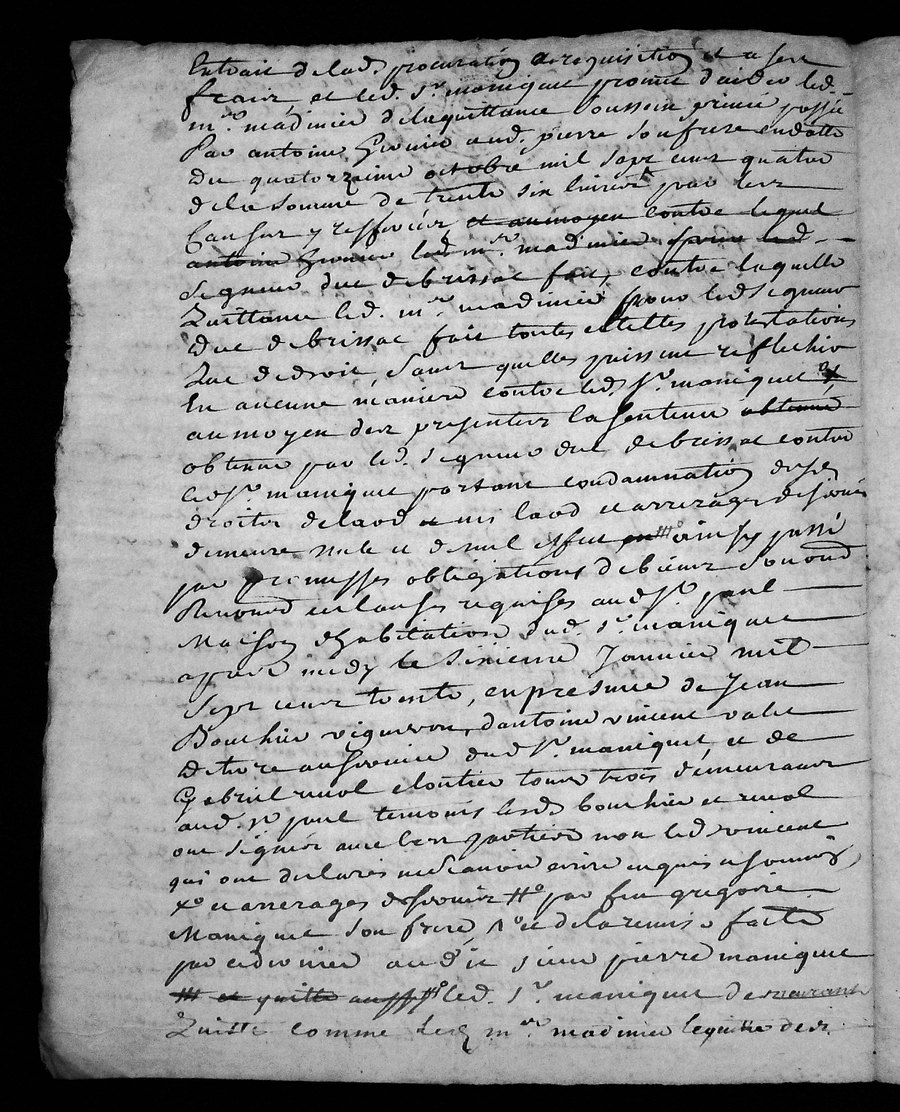 Extrait de lad. procuration a requisition et a ses
fraix, et led. Sr. maniquet promet d'aider led.
mr. madinier de la quittance soussein privé passée
Par antoine Gronier aud. pierre son frere en datte
Du quatorzieme octobre mil sept cent quatre
de la somme de trente six livres par les
Causes y resferées et au moyen contre lequel
antoine led. mr. madinier pour led.
seigneur duc de brissac fait, contre laquelle
Quittance led. mr. madinier pour led. seigneur
duc de brissac fait toutes et telles protestations
Que de droit, sans quelles puissent reflechir
En aucune maniere contre led. Sr. maniquet
au moyen des presentes la sentence obtenue
obtenue par led. seigneur duc de brissac contre
led. Sr. maniquet portant condamnation desd.
droits de laod et mi laod et arrerages de servis
demeure nulle et de nul effet ainsy passé
par promesses obligations de biens
Renond. et clauses requises aud. St. paul
Maison d'habitation dud. Sr. maniquet
apres midy le sixieme Janvier mil
Sept cent trente, en presence de Jean
Bouchier vigneron, d'antoine vincent valet
De terre au service dud. Sr. maniquet, et de
Gabriel ruol cloutier tous trois demeurants
aud. St. paul temoins lesd. bouchier et ruol
ont signés avec les parties non led. vincent
qui ont declarés ne scavoir ecrire enquis et sommés,
Xo. et arrerages de servis Ho. par feu gregoire
Maniquet son frere, No. et de la remise faite
par cedernier audit sieur pierre maniquet
et quitte Ho. led. Sr. maniquet demeurant
Quitte comme led. mr. madinier le quitte des